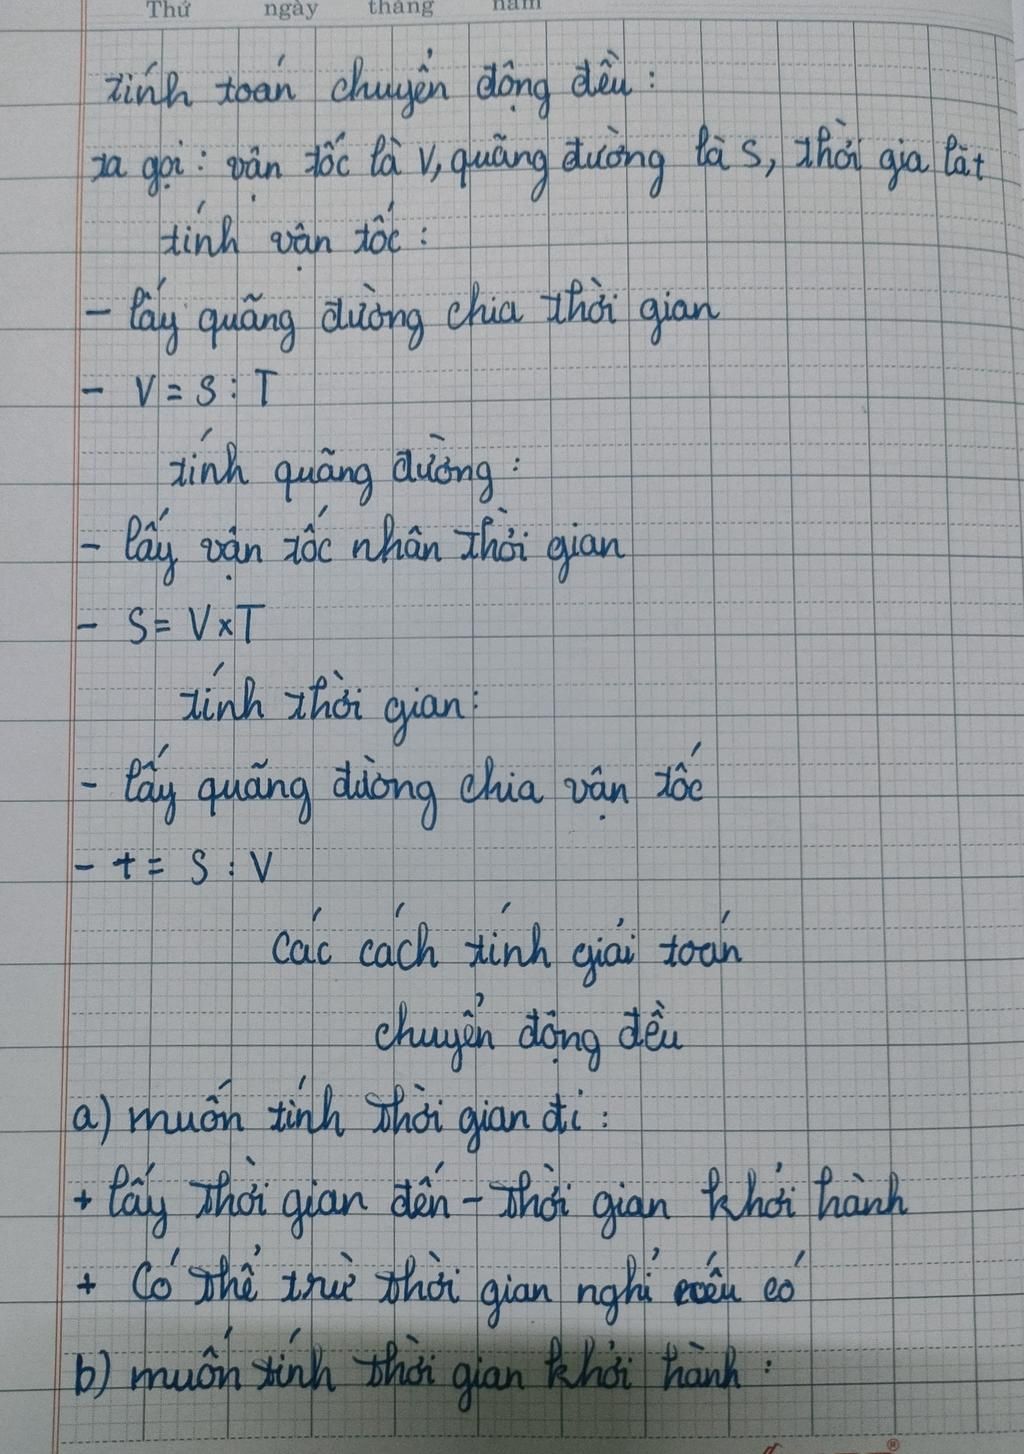 Thứ ngày tháng năm
tính toán chuyển động đều :
ta gọi : vận tốc là v, quãng đường là s, thời gia là t
tính vận tốc :
- lấy quãng đường chia thời gian
- V = S : T
tính quãng đường :
- lấy vận tốc nhân thời gian
- S = V x T
tính thời gian :
- lấy quãng đường chia vận tốc
- t = S : V
Các cách tính giải toán
chuyển động đều
a) muốn tính thời gian đi :
+ lấy thời gian đến - thời gian khởi hành
+ Có thể trừ thời gian nghỉ nếu có
b) muốn tính thời gian khởi hành :